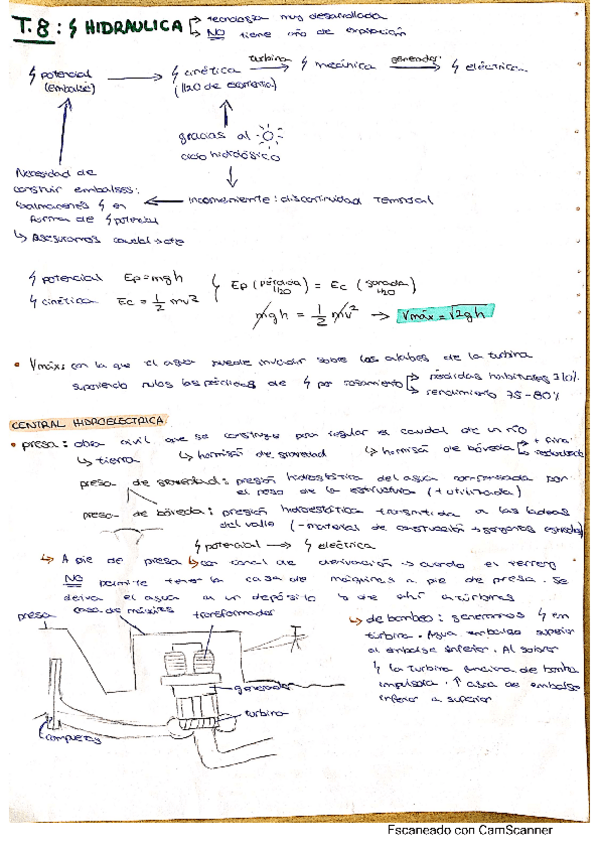 T.8: ϟ HIDRAULICA → tecnología muy desarrollada
→ NO tiene año de expiración
ϟ potencial (embalse) → ϟ cinética (H2O de escorrentía) → turbina ϟ mecánica → generador ϟ eléctrica...
gracias al
ciclo hidrológico
Necesidad de
construir embalses:
almacenamos ϟ en ← Inconveniente: discontinuidad temporal
forma de ϟ potencial
↳ Aseguramos caudal → cte
ϟ potencial Ep = mgh
ϟ cinética Ec = 1/2 mv²
Ep (pérdida H2O) = Ec (ganada H2O)
mgh = 1/2 mv² → Vmáx = √2gh
• Vmáx: con la que el agua puede incidir sobre los álabes de la turbina
suponiendo nulas las pérdidas de ϟ por rozamiento → pérdidas habituales 3-10%
→ rendimiento 75-80%
CENTRAL HIDROELECTRICA
• presa: obra civil que se construye para regular el caudal de un río
↳ tierra ↳ hormigón de gravedad ↳ hormigón de bóveda → + fina
presa de gravedad: presión hidrostática del agua compensada por
el peso de la estructura (+ utilizada)
presa de bóveda: presión hidrostática transmitida a las laderas
del valle (- material de construcción → gargantas estrechas)
ϟ potencial → ϟ eléctrica
↳ A pie de presa ↳ con canal de derivación → cuando el terreno
NO permite tener la casa de máquinas a pie de presa. Se
deriva el agua a un depósito y de ahí a turbinas
presa
casa de máquinas
transformador
generador
turbina
compuertas
↳ de bombeo: generamos ϟ en
turbina. Agua embalse superior
al embalse inferior. Al sobrar
ϟ la turbina funciona de bomba
impulsora. ↑ agua de embalse
inferior a superior
Escaneado con CamScanner